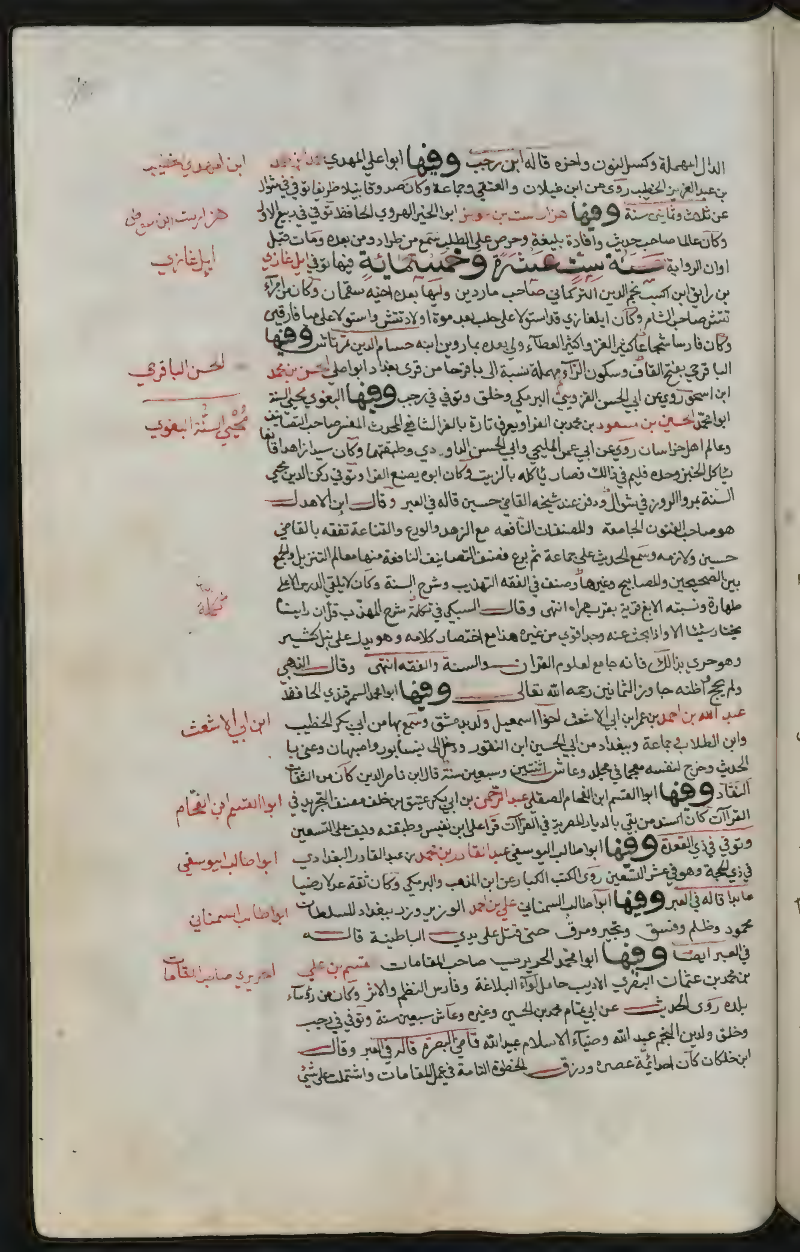 الدال المهملة وكسر النون واخره قاله ابن رجب وفيها ابو علي المهدي محمد بن محمد
ابن المهدي الخطيب
بن عبد العزيز الخطيب روى عن ابن غيلان والعتيقي وجماعة وكان صدوقا نبيلا ظريفا توفي في شوال
عن ثلث وثمانين سنة وفيها هزارست بن عوض ابو الخير الهروي الحافظ توفي في ربيع الاول
وكان عالما صاحب حديث وافادة بليغة وحرص على الطلب سمع من طراد ومن بعده ومات قبل
اوان الرواية سنة ست عشرة وخمسماية فيها توفي ايل غازي
ايل غازي
بن ارتق ابن اكسب نجم الدين التركماني صاحب ماردين وليها بعد اخيه سقمان وكان من امرآء
تتش صاحب الشام وكان ايلغازي قد استولا على حلب بعد موت اولاد تتش واستولا على ميافارقين
وكان فارسا شجاعا كثير الغزو كثير العطآء ولي بعده ماردين ابنه حسام الدين تمرتاش وفيها
الباقرحي بفتح القاف وسكون الرآء مهملة نسبة الى باقرحا من قرى بغداد ابو علي الحسن بن محمد
الحسن الباقرحي
ابن اسحق روى عن ابي الحسن القزويني والبرمكي وخلق وتوفي في رجب وفيها البغوي محيي السنة
ابو محمد الحسين بن مسعود بن محمد بن الفرا ويعرف تارة بالفرا الشافعي المحدث المفسر صاحب التصانيف
محيي السنة البغوي
وعالم اهل خراسان روى عن ابي عمر المليحي وابي الحسن الداودي وطبقتهما وكان سيدا زاهدا قانعا
ياكل الخبز وحده فليم في ذلك فصار ياكله بالزيت وكان ابوه يصنع الفرا وتوفي ركن الدين محيي
السنة بمرو الروز في شوال ودفن عند شيخه القاضي حسين قاله في العبر وقال ابن الاهدل
هو صاحب الفنون الجامعة والمصنفات النافعه مع الزهد والورع والقناعة تفقه بالقاضي
حسين ولازمه وسمع الحديث على جماعة ثم برع فصنف التصانيف النافعة منها معالم التنزيل والجمع
بين الصحيحين والمصابيح وغيرها وصنف في الفقه التهذيب وشرح السنة وكان لا يلقي الدرس الا على
طهارة ونسبته الا بغ قرية بقرب هراه انتهى وقال السبكي في تكملة شرح المهذب قل ان راينا
تكملة
يختار شيئا الا واذا بحث عنه وجد اقوى من غيره هذا مع اختصار كلامه وهو يدل على نبل كبير
وهو حري بذلك فانه جامع لعلوم القران والسنة والفقه انتهى وقال الذهبي
ولم يحج واظنه جاوز الثمانين رحمه الله تعالى وفيها ابو محمد السمرقندي الحافظ
عبد الله بن احمد بن عمر ابن ابي الاشعث اخو اسمعيل ولد بدمشق وسمع بها من ابي بكر الخطيب
ابن ابي الاشعث
وابن الطلاب وجماعة وببغداد من ابي الحسين ابن النقور ودخل الى نيسابور واصبهان وعنى با
لحديث وخرج لنفسه معجما في مجلد وعاش اثنتين وسبعين سنة قال ابن ناصر الدين كان من الثقات
النقاد وفيها ابو القسم ابن الفحام الصقلي عبد الرحمن بن ابي بكر عتيق بن خلف مصنف التجريد في
ابو القسم ابن الفحام
القراآت كان اسند من بقي بالديار المصرية في القراآت قرا على ابن نفيس وطبقته ونيف على التسعين
وتوفي في ذي القعدة وفيها ابو طالب اليوسفي عبد القادر بن محمد بن عبد القادر البغدادي
ابو طالب اليوسفي
في ذي الحجة وهو في عشر التسعين روى الكتب الكبار عن ابن المذهب والبرمكي وكان ثقة عدلا رضيا
عابدا قاله في العبر وفيها ابو طالب السمناني علي بن احمد الوزير وزر ببغداد للسلطان
ابو طالب السمناني
محمود وظلم وفسق وتجبر ومرق حتى قتل على يدي الباطنية قاله
في العبر ايضا وفيها ابو محمد الحريري صاحب المقامات قسم بن علي
الحريري صاحب المقامات
بن محمد بن عثمان البصري الاديب حامل لوآء البلاغة وفارس النظم والنثر وكان من رؤسآء
بلده روى الحديث عن ابي تمام محمد بن الحسين وغيره وعاش سبعين سنة وتوفي في رجب
وخلق ولدين النجم عبد الله وضيآء الاسلام عبيد الله قاضي البصرة قاله في العبر وقال
ابن خلكان كان احد ائمة عصره ورزق الحظوة التامة في عمل المقامات واشتملت على شي